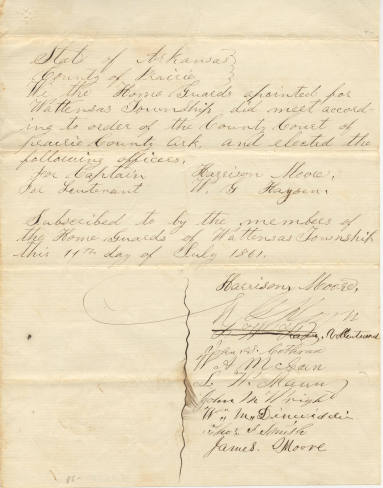 State of Arkansas
County of Prairie
We the Home Guards apointed for
Wattensas Township did meet accord-
ing to order of the County Court of
prairie County Ark. and elected the
following officers.
for Captain Harrison Moore.
for Leutenant W. G
Subscribed to by the members of
the Home Guards of Wattensas Township
this 11th day of July 1861.
Harrison Moore,
James
W A McGan
L. W. Mann
John M Wright
Wm M Dinwiddie
Thos J Smith
James Moore